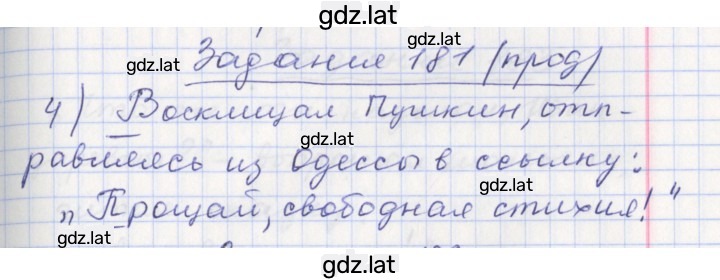 gdz.lat
Задание 181 (прод)
gdz.lat
gdz.lat
4) Восклицал Пушкин, отп-
равляясь из Одессы в ссылку:
gdz.lat
„Прощай, свободная стихия!"
gdz.lat
gdz.lat